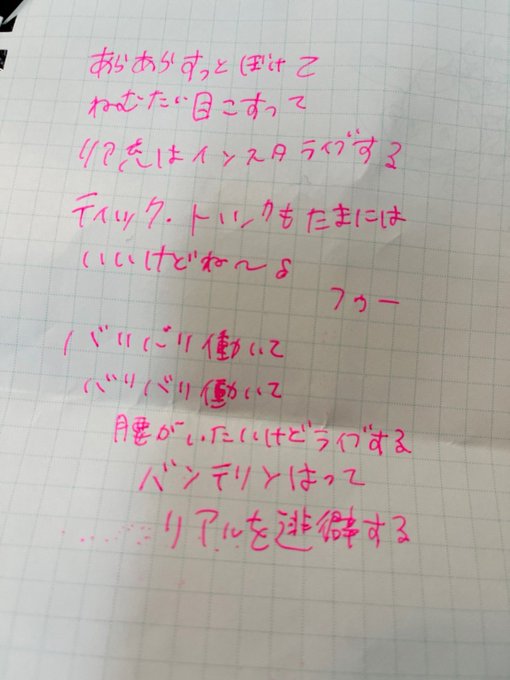 あらあらすっとぼけて
ねむたい目こすって
リア充はインスタライブする
ティック・トックもたまには
いいけどね〜♪
フゥー
バリバリ働いて
バリバリ働いて
腰がいたいけどライブする
バンテリンはって
リアルを逃避する